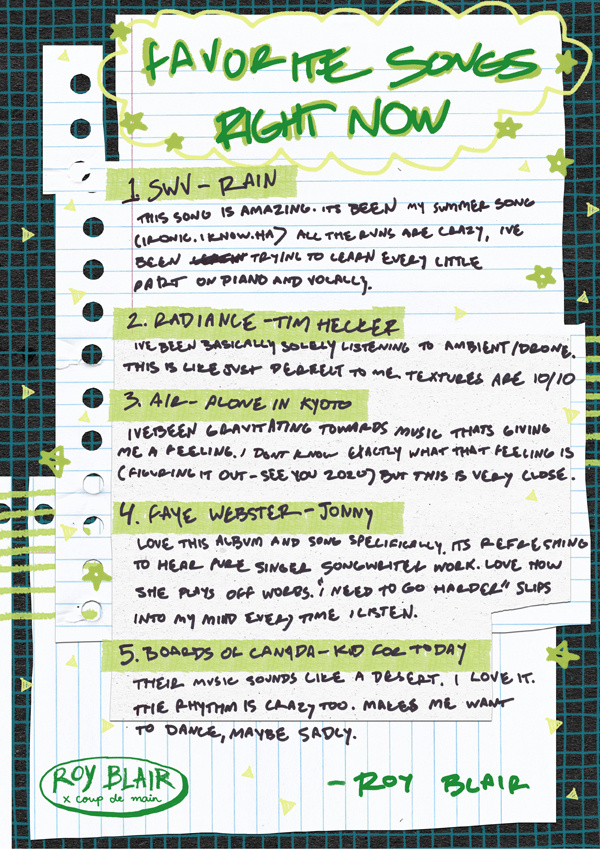 FAVORITE SONGS
RIGHT NOW
1 SWV - RAIN
THIS SONG IS AMAZING. ITS BEEN MY SUMMER SONG
(IRONIC. I KNOW. HA) ALL THE RUNS ARE CRAZY, IVE
BEEN TRYING TO LEARN EVERY LITTLE
PART ON PIANO AND VOCALLY.
2. RADIANCE - TIM HECKER
IVE BEEN BASICALLY SOLELY LISTENING TO AMBIENT/DRONE.
THIS IS LIKE JUST PERFECT TO ME. TEXTURES ARE 10/10
3. AIR - ALONE IN KYOTO
IVE BEEN GRAVITATING TOWARDS MUSIC THATS GIVING
ME A FEELING. I DONT KNOW EXACTLY WHAT THAT FEELING IS
(FIGURING IT OUT - SEE YOU 2020) BUT THIS IS VERY CLOSE.
4. FAYE WEBSTER - JONNY
LOVE THIS ALBUM AND SONG SPECIFICALLY. ITS REFRESHING
TO HEAR PURE SINGER SONGWRITER WORK. LOVE HOW
SHE PLAYS OFF WORDS. "I NEED TO GO HARDER" SLIPS
INTO MY MIND EVERY TIME I LISTEN.
5. BOARDS OF CANADA - KID FOR TODAY
THEIR MUSIC SOUNDS LIKE A DESERT. I LOVE IT.
THE RHYTHM IS CRAZY TOO. MAKES ME WANT
TO DANCE, MAYBE SADLY.
- ROY BLAIR
ROY BLAIR
x coup de main